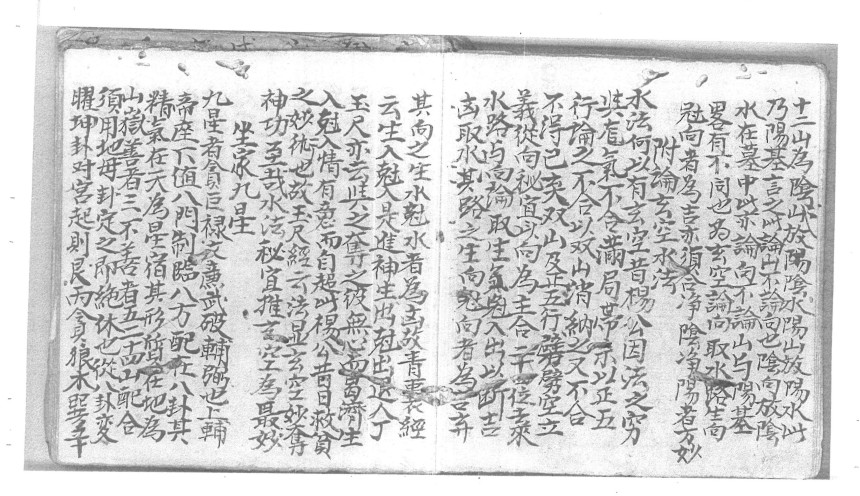 十二山為陰山放陰水陽山放陽水此
乃陽基言之此論山不論向也陰向放陰
水在墓中此亦論向不論山与陽基
畧有不同也為玄空論向取水路生向
尅向者為吉亦須合净陰净陽者方妙
附論玄空水法
水法何以有玄空昔楊公因法之穷
龍氣不合滿局
行論之不合以双山消納之又不合
不得已夹双山及正五行劈空立
義從向秘宜以向為主合二十四位之來
水路与向論取生尅出入以断吉
凶取水其路之生向尅向者為吉弃
其向之生水尅水者為凶故青囊經
云生入尅入是進神生出尅出退人丁
玉尺亦云與之奪之彼無心而窩濟生
入尅入情有意而自超此楊公昔日救貧
之妙術也故玉尺經云法显玄空妙奪
神功至哉水法秘宜推玄空為最妙
坐家九星
九星者貪巨禄文廉武破輔弼也上輔
帝座下值八門制臨八方配在八卦其
精氣在天為星宿其形質在地為
山嶽善者三不善者五二十四山配合
須用地母卦定之即絶休也從八卦变
曜坤卦对宮起則艮而貪狼木巽